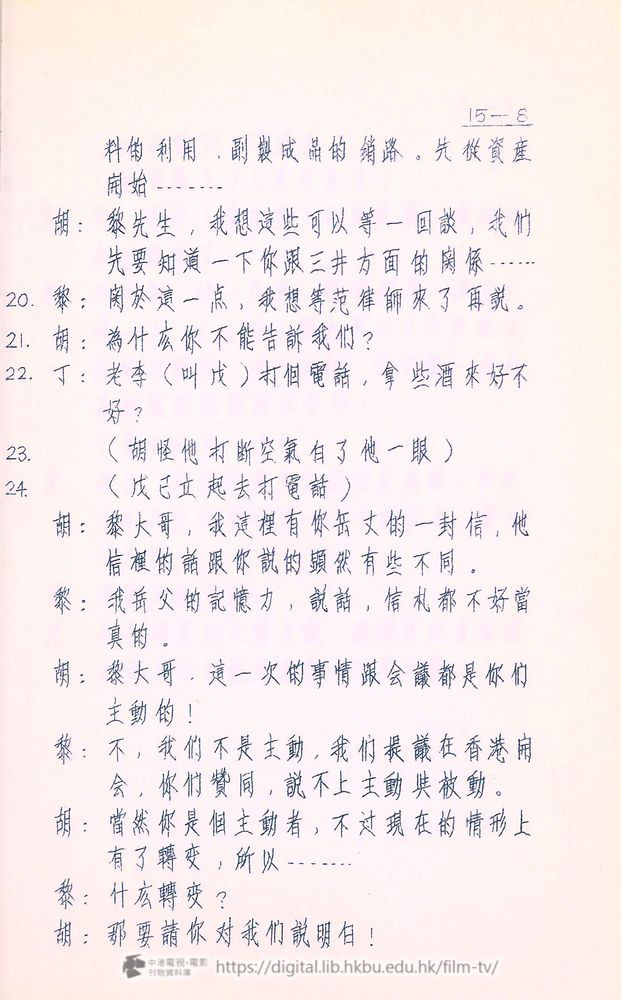 15—8
料的利用、副製成品的銷路。先從資產
開始-------
胡：黎先生，我想這些可以等一回談，我們
先要知道一下你跟三井方面的関係------
20. 黎：関於這一点，我想等范律師來了再説。
21. 胡：為什庅你不能告訴我們？
22. 丁：老李（叫戊）打個電話，拿些酒來好不
好？
23. （胡怪他打断空氣白了他一眼）
24. （戊已立起去打電話）
胡：黎大哥，我這裡有你岳丈的一封信，他
信裡的話跟你説的顕然有些不同。
黎：我岳父的記憶力，説話，信札都不好當
真的。
胡：黎大哥．這一次的事情跟会議都是你们
主動的！
黎：不，我们不是主動，我们提議在香港開
会，你们贊同，説不上主動與被動。
胡：當然你是個主動者，不过現在的情形上
有了轉变，所以-------
黎：什庅轉变？
胡：那要請你对我们説明白！
中港電視·電影
刊物資料庫
https://digital.lib.hkbu.edu.hk/film-tv/